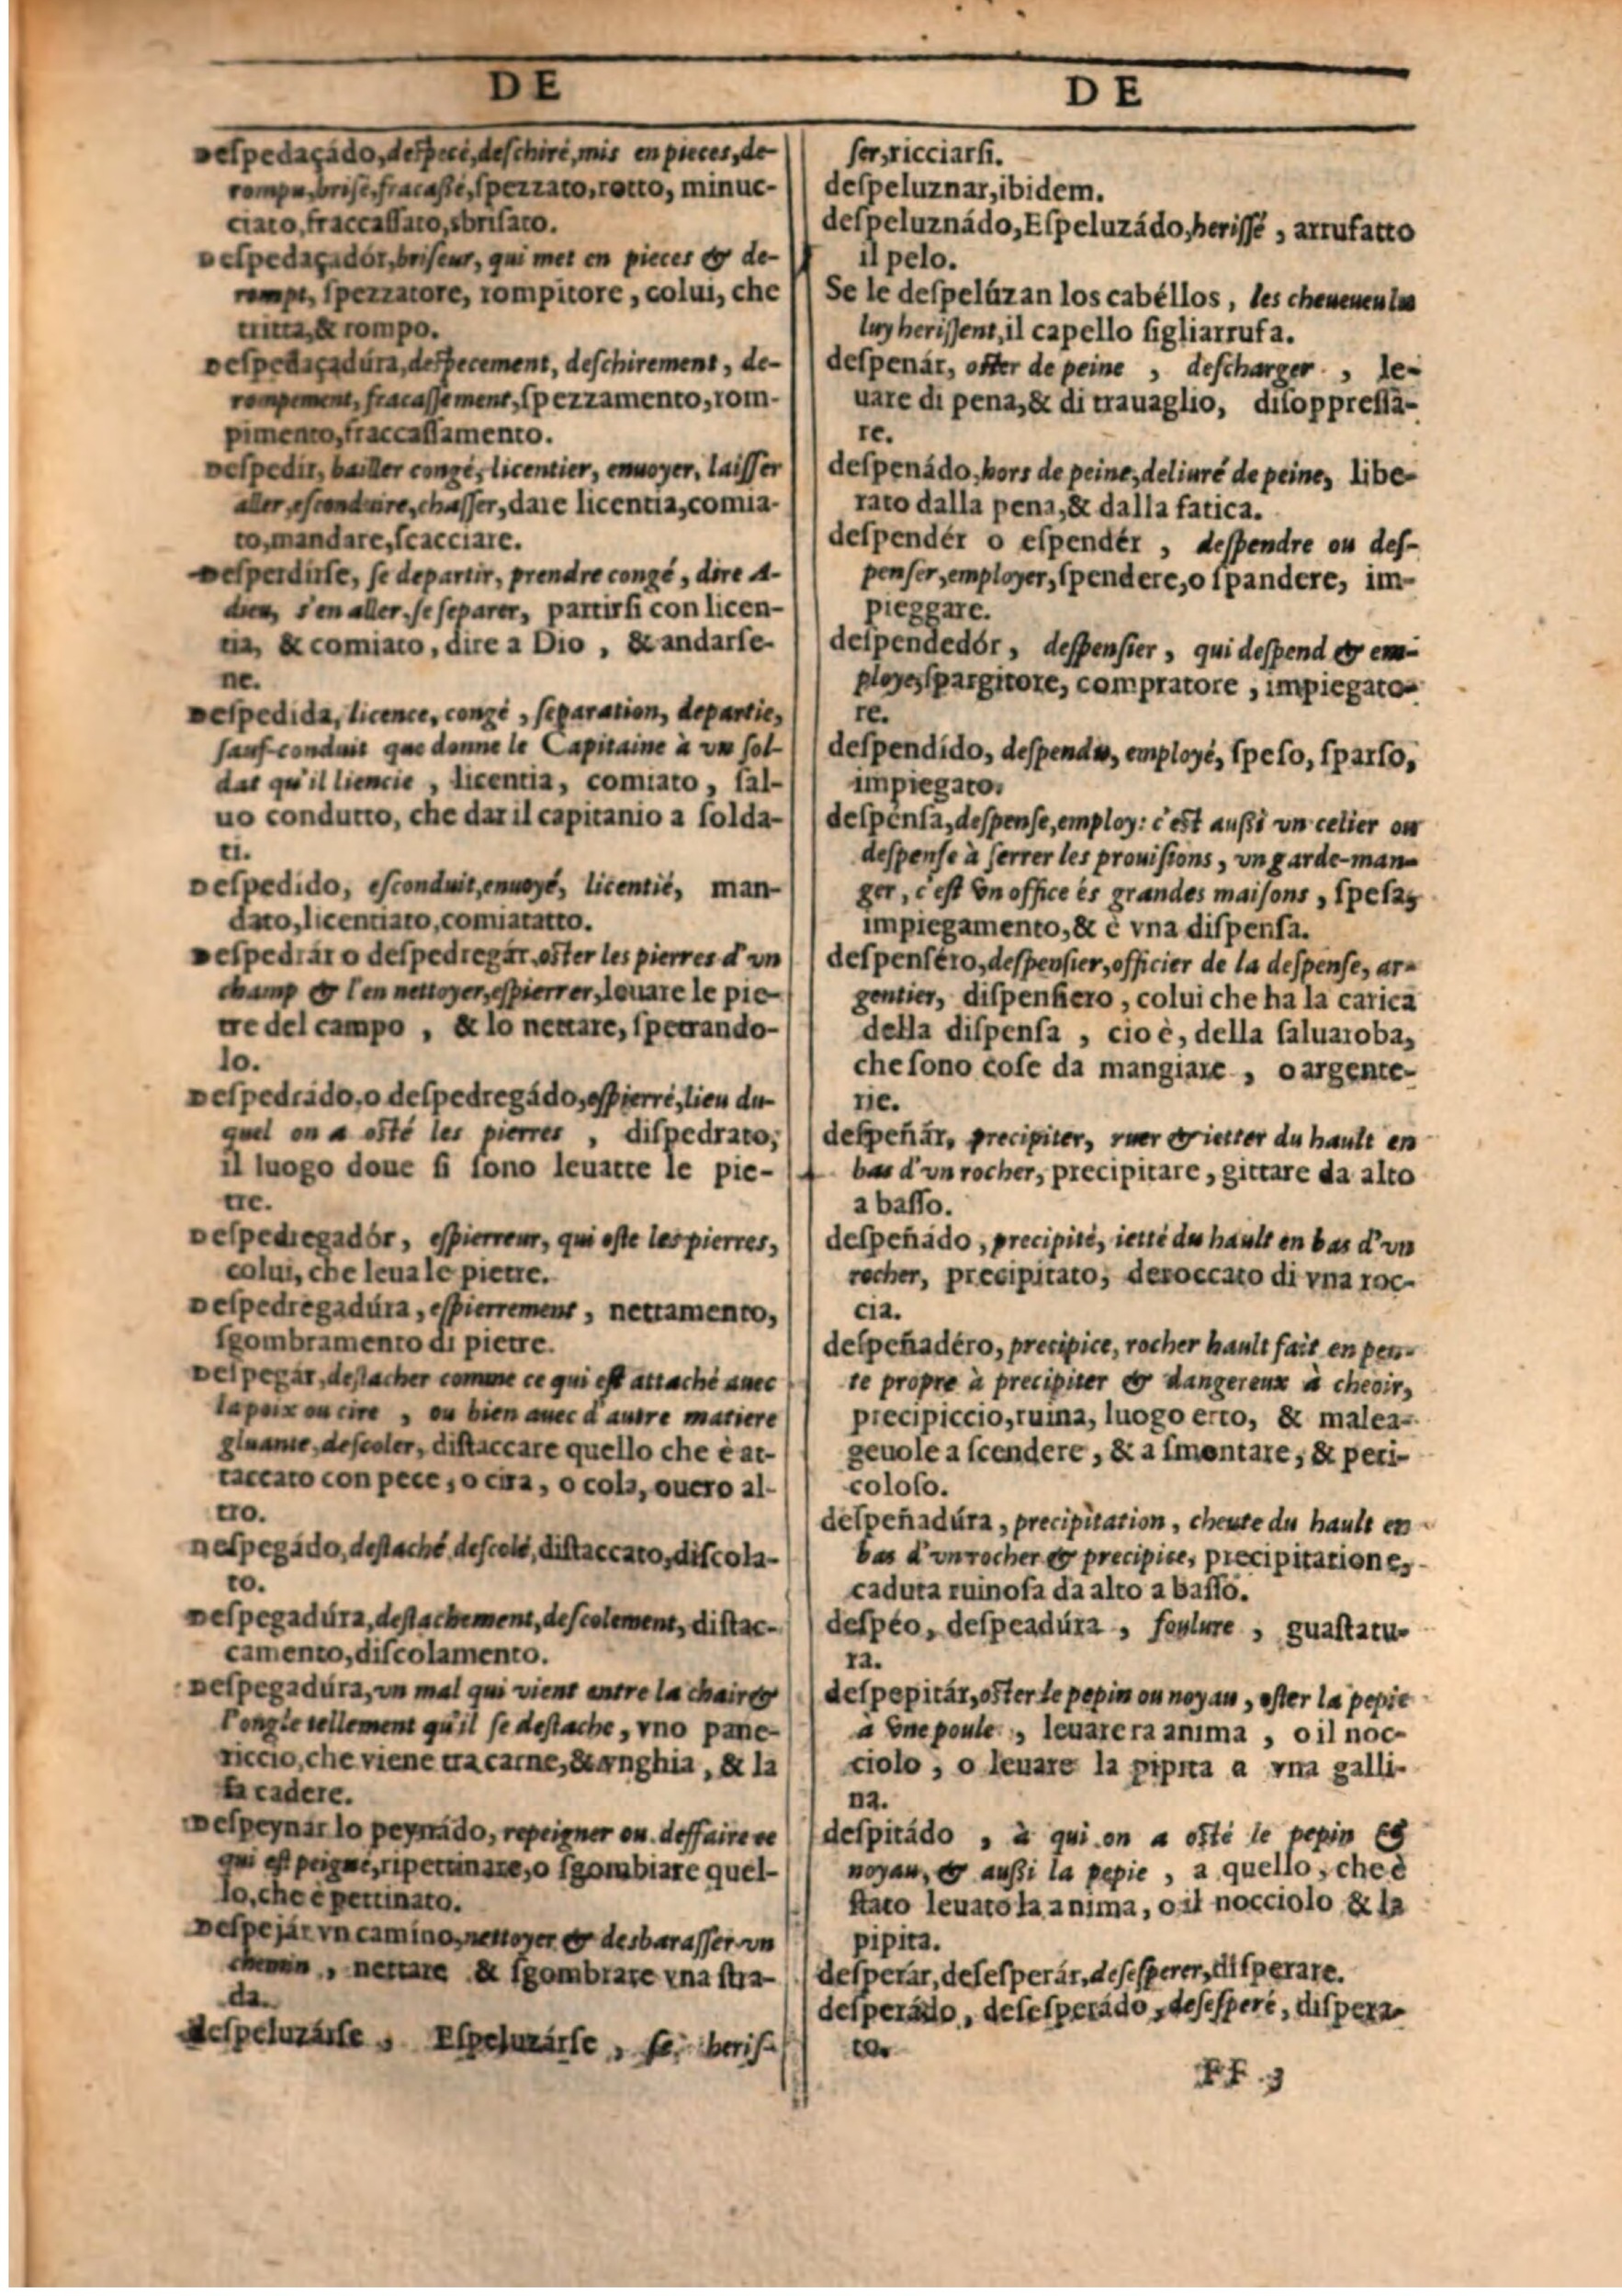 DE
DE
Deſpedaçádo, deſpecé, deſchiré, mis en pieces, de-
rompu, briſé, fracaſſé, ſpezzato, rotto, minuc-
ciato, fraccaſſato, sbriſato.
Deſpedaçadór, briſeur, qui met en pieces & de-
rompt, ſpezzatore, rompitore, colui, che
tritta, & rompo.
Deſpedaçadúra, deſpecement, deſchirement, de-
rompement, fracaſſement, ſpezzamento, rom-
pimento, fraccaſſamento.
Deſpedir, bailler congé, licentier, enuoyer, laiſſer
aller, eſconduire, chaſſer, dare licentia, comia-
to, mandare, ſcacciare.
Deſperdirſe, ſe departir, prendre congé, dire A-
dieu, s'en aller, ſe ſeparer, partirſi con licen-
tia, & comiato, dire a Dio, & andarſe-
ne.
Deſpedida, licence, congé, ſeparation, departie,
ſauf-conduit que donne le Capitaine à vn ſol-
dat qu'il liencie, licentia, comiato, ſal-
uo condutto, che dar il capitanio a ſolda-
ti.
Deſpedido, eſconduit, enuoyé, licentié, man-
dato, licentiato, comiatatto.
Deſpedrár o deſpedregár, oſter les pierres d'vn
champ & l'en nettoyer, eſpierrer, leuare le pie-
tre del campo, & lo nettare, ſpetrando-
lo.
Deſpedrádo, o deſpedregádo, eſpierré, lieu du-
quel on a oſté les pierres, diſpedrato,
il luogo doue ſi ſono leuatte le pie-
tre.
Deſpedregadór, eſpierreur, qui oſte les pierres,
colui, che leua le pietre.
Deſpedregadúra, eſpierrement, nettamento,
ſgombramento di pietre.
Deſpegár, deſtacher comme ce qui eſt attaché auec
la poix ou cire, ou bien auec d'autre matiere
gluante, deſcoler, diſtaccare quello che è at-
taccato con pece, o cira, o cola, ouero al-
tro.
Deſpegádo, deſtaché, deſcolé, diſtaccato, diſcola-
to.
Deſpegadúra, deſtachement, deſcolement, diſtac-
camento, diſcolamento.
Deſpegadúra, vn mal qui vient entre la chair &
l'ongle tellement qu'il ſe deſtache, vno pane-
riccio, che viene tra carne, & vnghia, & la
fa cadere.
Deſpeynár lo peynádo, repeigner ou deffaire ce
qui eſt peigné, ripettinare, o ſgombiare quel-
lo, che è pettinato.
Deſpejár vn camino, nettoyer & desbaraſſer vn
chemin, nettare & ſgombrare vna ſtra-
da.
deſpeluzárſe, Eſpeluzárſe, ſe heriſ-
ſer, ricciarſi.
deſpeluznar, ibidem.
deſpeluznádo, Eſpeluzádo, heriſſé, arrufatto
il pelo.
Se le deſpelúzan los cabéllos, les cheueux
luy heriſſent, il capello ſigliarrufa.
deſpenár, oſter de peine, deſcharger, le-
uare di pena, & di trauaglio, diſoppreſſa-
re.
deſpenádo, hors de peine, deliuré de peine, libe-
rato dalla pena, & dalla fatica.
deſpendér o eſpendér, deſpendre ou deſ-
penſer, employer, ſpendere, o ſpandere, im-
pieggare.
deſpendedór, deſpenſier, qui deſpend & em-
ploye, ſpargitore, compratore, impiegato-
re.
deſpendído, deſpendu, employé, ſpeſo, ſparſo,
impiegato.
deſpénſa, deſpenſe, employ: c'eſt auſſi vn celier ou
deſpenſe à ſerrer les prouiſions, vn garde-man-
ger, c'eſt vn office és grandes maiſons, ſpeſa,
impiegamento, & è vna diſpenſa.
deſpenſéro, deſpenſier, officier de la deſpenſe, ar-
gentier, diſpenſiero, colui che ha la carica
della diſpenſa, cio è, della ſaluaroba,
che ſono coſe da mangiare, o argente-
rie.
deſpeñár, precipiter, ruer & ietter du hault en
bas d'vn rocher, precipitare, gittare da alto
a baſſo.
deſpeñádo, precipité, ietté du hault en bas d'vn
rocher, precipitato, deroccato di vna roc-
cia.
deſpeñadéro, precipice, rocher hault fait en pen-
te propre à precipiter & dangereux à cheoir,
precipiccio, ruina, luogo erto, & malea-
geuole a ſcendere, & a ſmontare, & peri-
coloſo.
deſpeñadúra, precipitation, cheute du hault en
bas d'vn rocher & precipice, precipitatione,
caduta ruinoſa da alto a baſſo.
deſpéo, deſpeadúra, foulure, guaſtatu-
ra.
deſpepitár, oſter le pepin ou noyau, oſter la pepie
à vne poule, leuare ra anima, o il noc-
ciolo, o leuare la pipita a vna galli-
na.
deſpitádo, à qui on a oſté le pepin &
noyau, & auſſi la pepie, a quello, che è
ſtato leuato la anima, o il nocciolo & la
pipita.
deſperár, deſeſperár, deſeſperer, diſperare.
deſperádo, deſeſperádo, deſeſperé, diſpera-
to.
FF 3